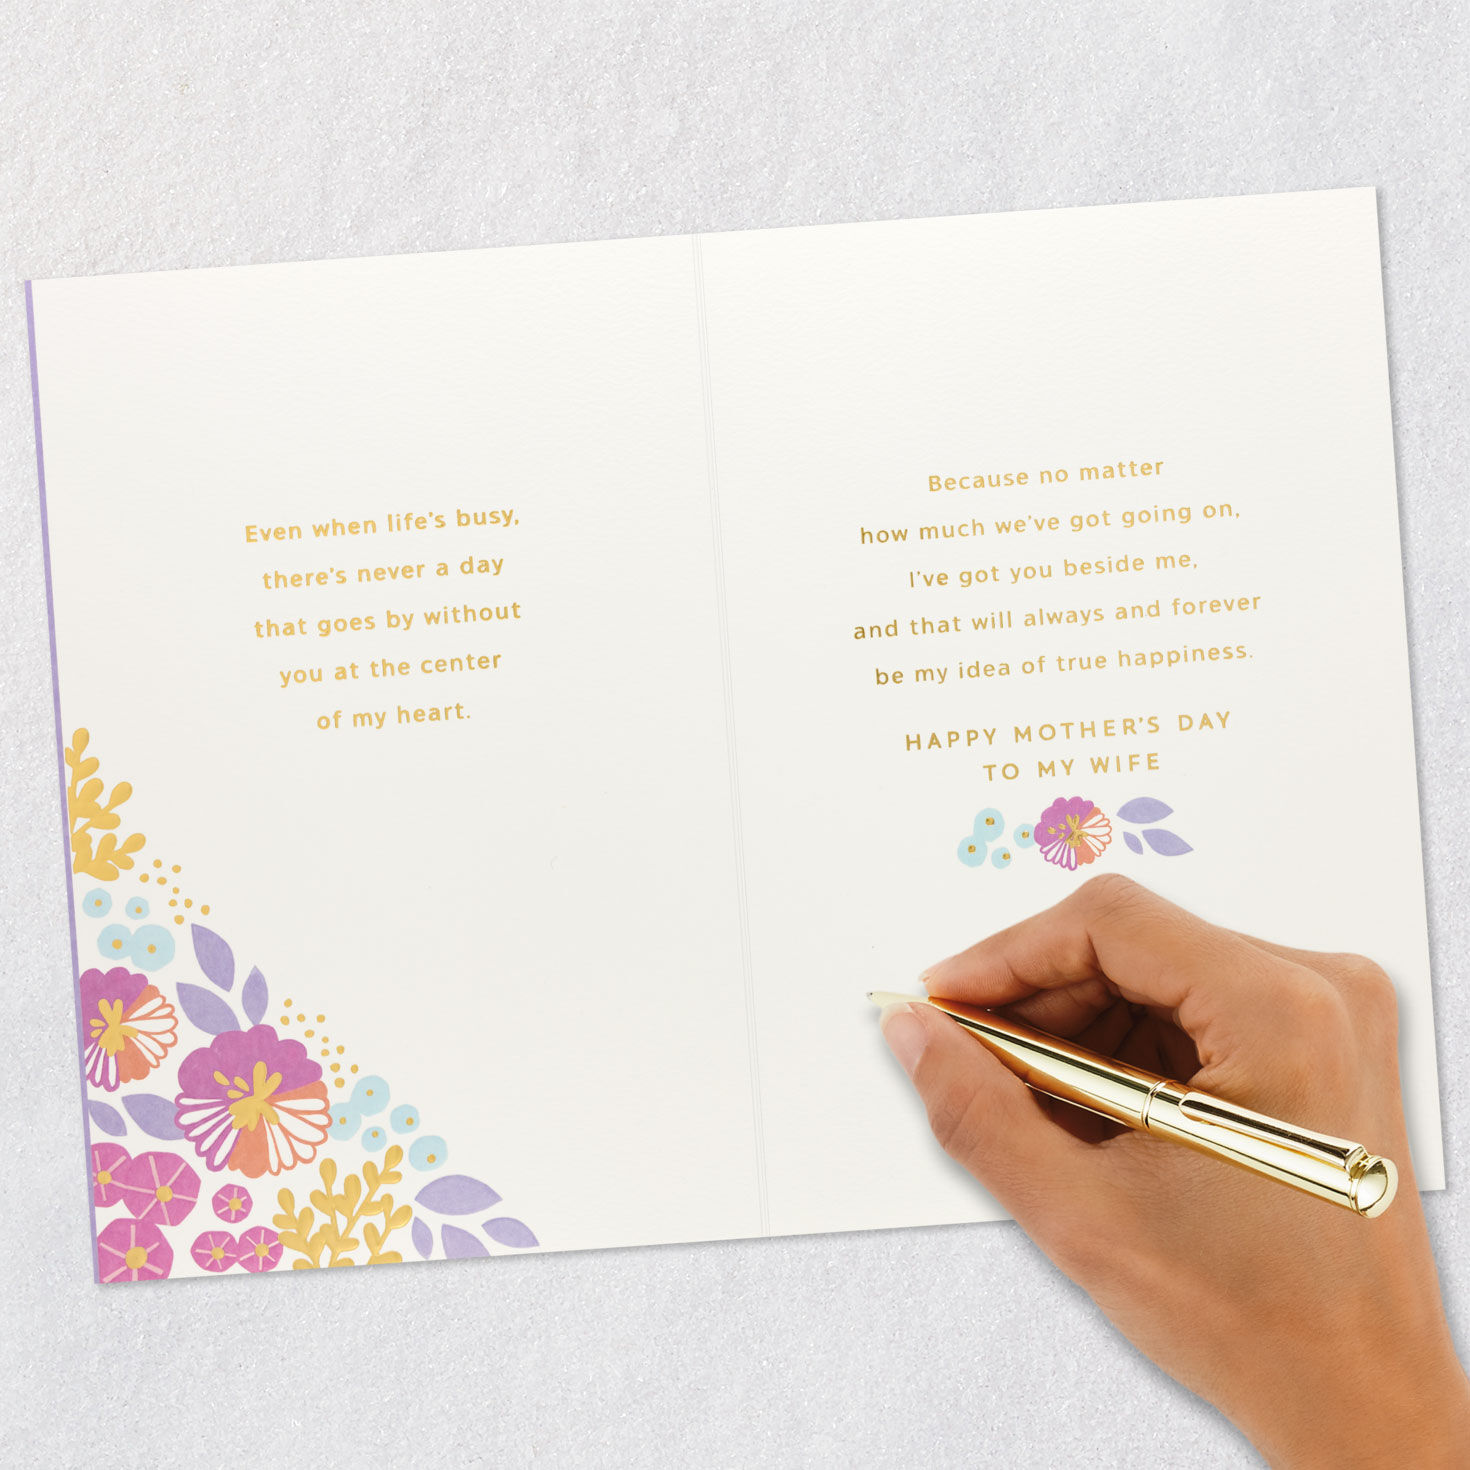 Even when life's busy,
there's never a day
that goes by without
you at the center
of my heart.
Because no matter
how much we've got going on,
I've got you beside me,
and that will always and forever
be my idea of true happiness.
HAPPY MOTHER'S DAY
TO MY WIFE